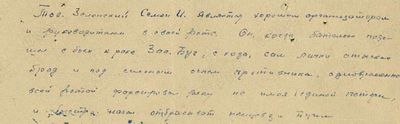 Тов. Зеленский Семен И. является хорошим организатором
и руководителем в своей роте. Он, когда батальон подо-
шел с боем к реке Зап. Буг, с хода, сам лично отыскал
брод и под сильным огнем противника, одновременно
всей ротой форсировал реку не имея единой потери,
и начал отбрасывать немцев